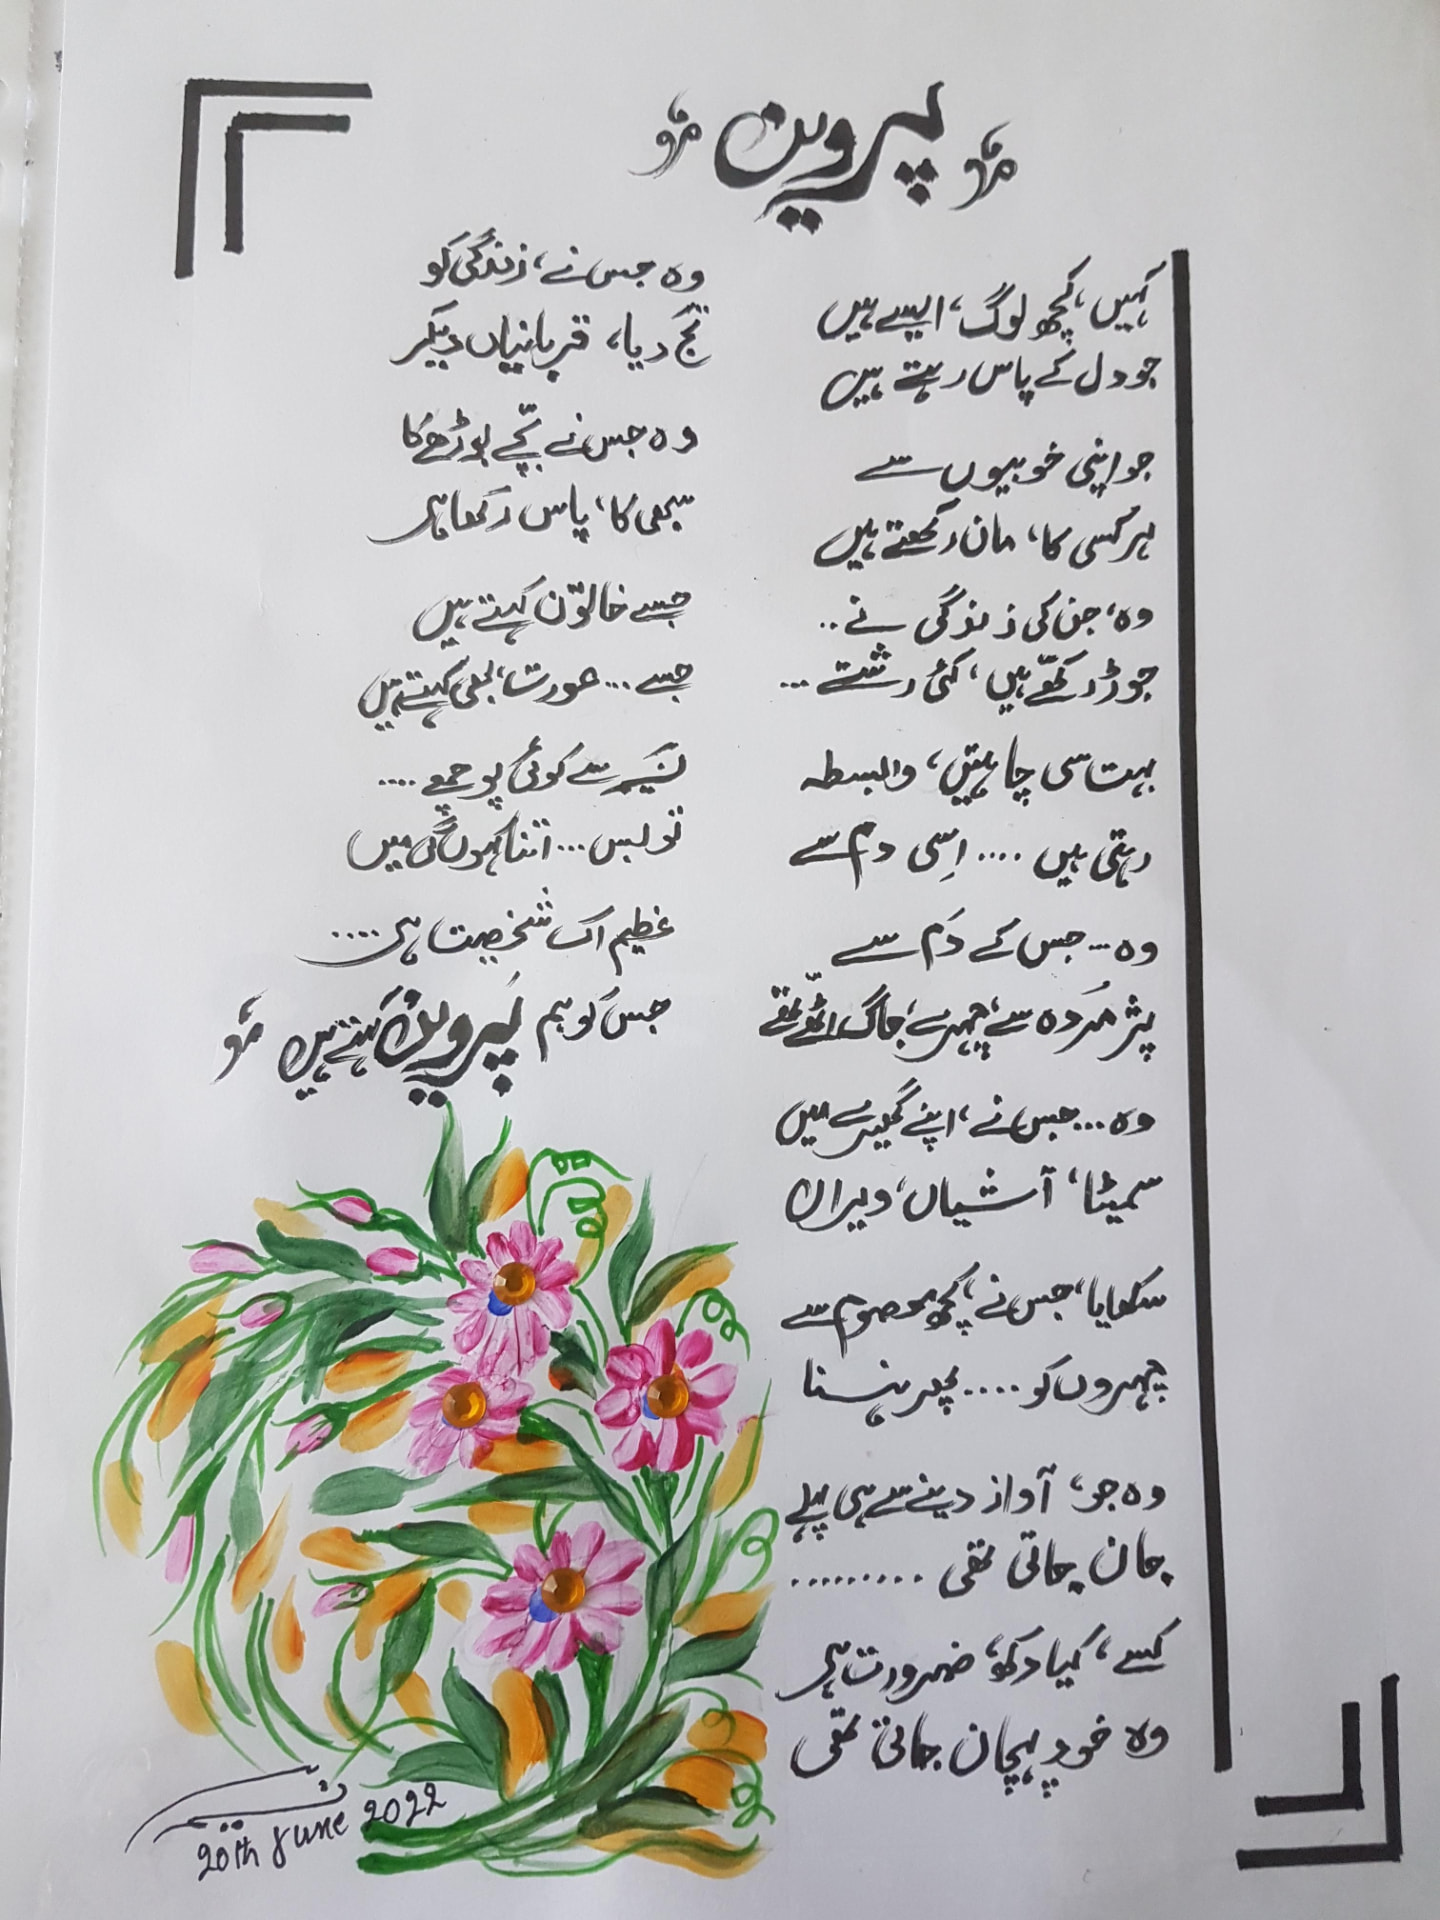 پروین
کہیں، کچھ لوگ، ایسے ہیں
جو دل کے پاس رہتے ہیں
جو اپنی خوبیوں سے
ہر کسی کا، مان رکھتے ہیں
وہ، جن کی زندگی نے..
جوڑ رکھّے ہیں، کئی رشتے...
بہت سی چاہتیں، وابسطہ
رہتی ہیں .... اِسی دم سے
وہ... جس کے دَم سے
پژمُردہ سے، چہرے، جاگ اٹھّے تھے
وہ... جس نے، اپنے گھیرے میں
سمیٹا، آشیاں، ویراں
سکھایا، جس نے، کچھ معصوم سے
چہروں کو .... پھر ہنسنا
وہ جو، آواز دینے سے ہی پہلے
جان جاتی تھی .........
کسے، کیا دکھ، ضرورت ہے
وہ خود پہچان جاتی تھی
وہ جس نے، زندگی کو
تج دیا، قربانیاں دیکر
وہ جس نے بچّے بوڑھے کا
سبھی کا، پاس رکھا ہے
جسے خاتون کہتے ہیں
جسے ... عورت، بھی کہتے ہیں
نسیمہ سے کوئی پوچھے ....
تو بس ... اتنا کہوں گی میں
عظیم اک شخصیت ہے ....
جس کو ہم پَروین کہتے ہیں
نسیمہ
20th June 2022